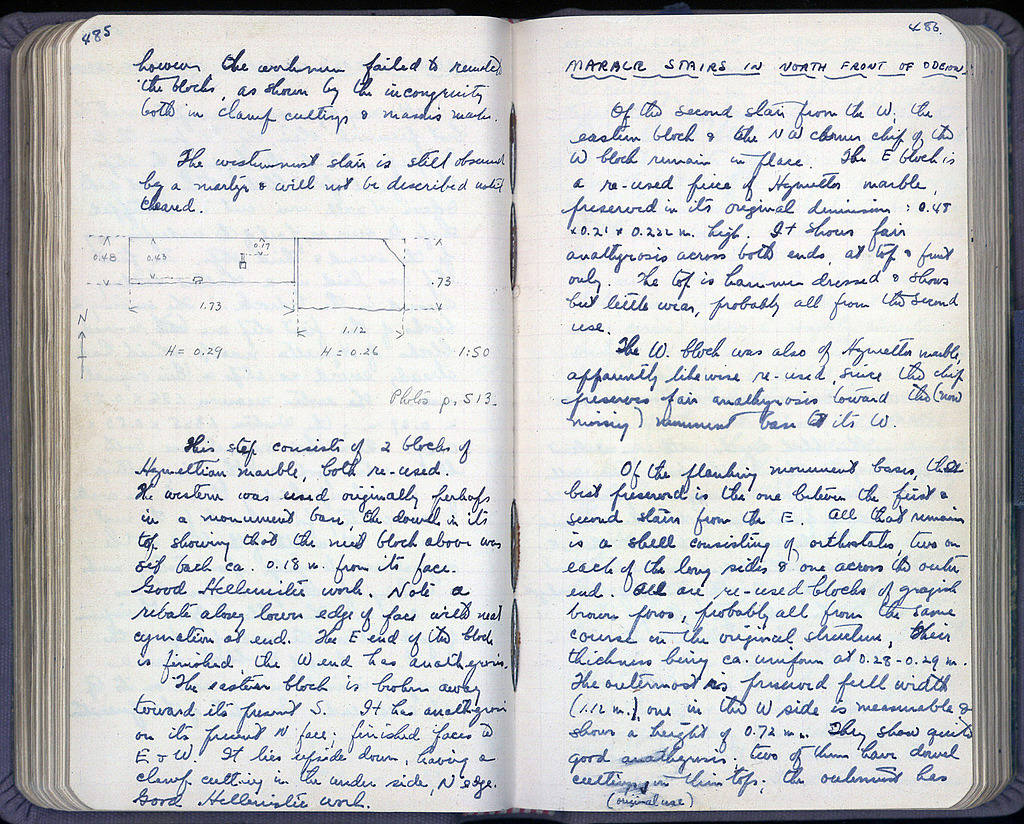 485
however the workmen failed to reunite
the blocks, as shown by the incongruity
both in clamp cuttings & mason's marks.
The westernmost stair is still obscured
by a martyr & will not be described until
cleared.
0.48 0.43 0.17
.73
1.73
1.12
N
H = 0.29 H = 0.26 1:50
Photos p. 513.
This step consists of 2 blocks of
Hymettian marble, both re-used.
The western was used originally perhaps
in a monument base, the dowel in its
top showing that the next block above was
set back ca. 0.18 m. from its face.
Good Hellenistic work. Note a
rebate along lower edge of face with neat
cymation at end. The E end of the block
is finished, the W end has anathyrosis.
The eastern block is broken away
toward its present S. It has anathyrosis
on its present N face; finished faces to
E & W. It lies upside down, having a
clamp cutting in the under side, N edge.
Good Hellenistic work.
486.
MARBLE STAIRS IN NORTH FRONT OF ODEION:
Of the second stair from the W, the
eastern block & the NW corner chip of the
W block remain in place. The E block is
a re-used piece of Hymettos marble,
preserved in its original dimension: 0.48
× 0.21 × 0.222 m. high. It shows fair
anathyrosis across both ends, at top & front
only. The top is hammer dressed & shows
but little wear, probably all from the second
use.
The W. block was also of Hymettos marble,
apparently likewise re-used, since the chip
preserves fair anathyrosis toward the (now
missing) monument base to its W.
Of the flanking monument bases, the
best preserved is the one between the first &
second stairs from the E. All that remains
is a shell consisting of orthostates, two on
each of the long sides & one across the outer
end. All are re-used blocks of grayish
brown poros, probably all from the same
course in the original structure, their
thickness being ca. uniform at 0.28-0.29 m.
The outermost is preserved full width
(1.12 m.), one in the W side is measurable &
shows a height of 0.72 m. They show quite
good anathyrosis; two of them have dowel
cuttings in their tops; the outermost has
(original use)